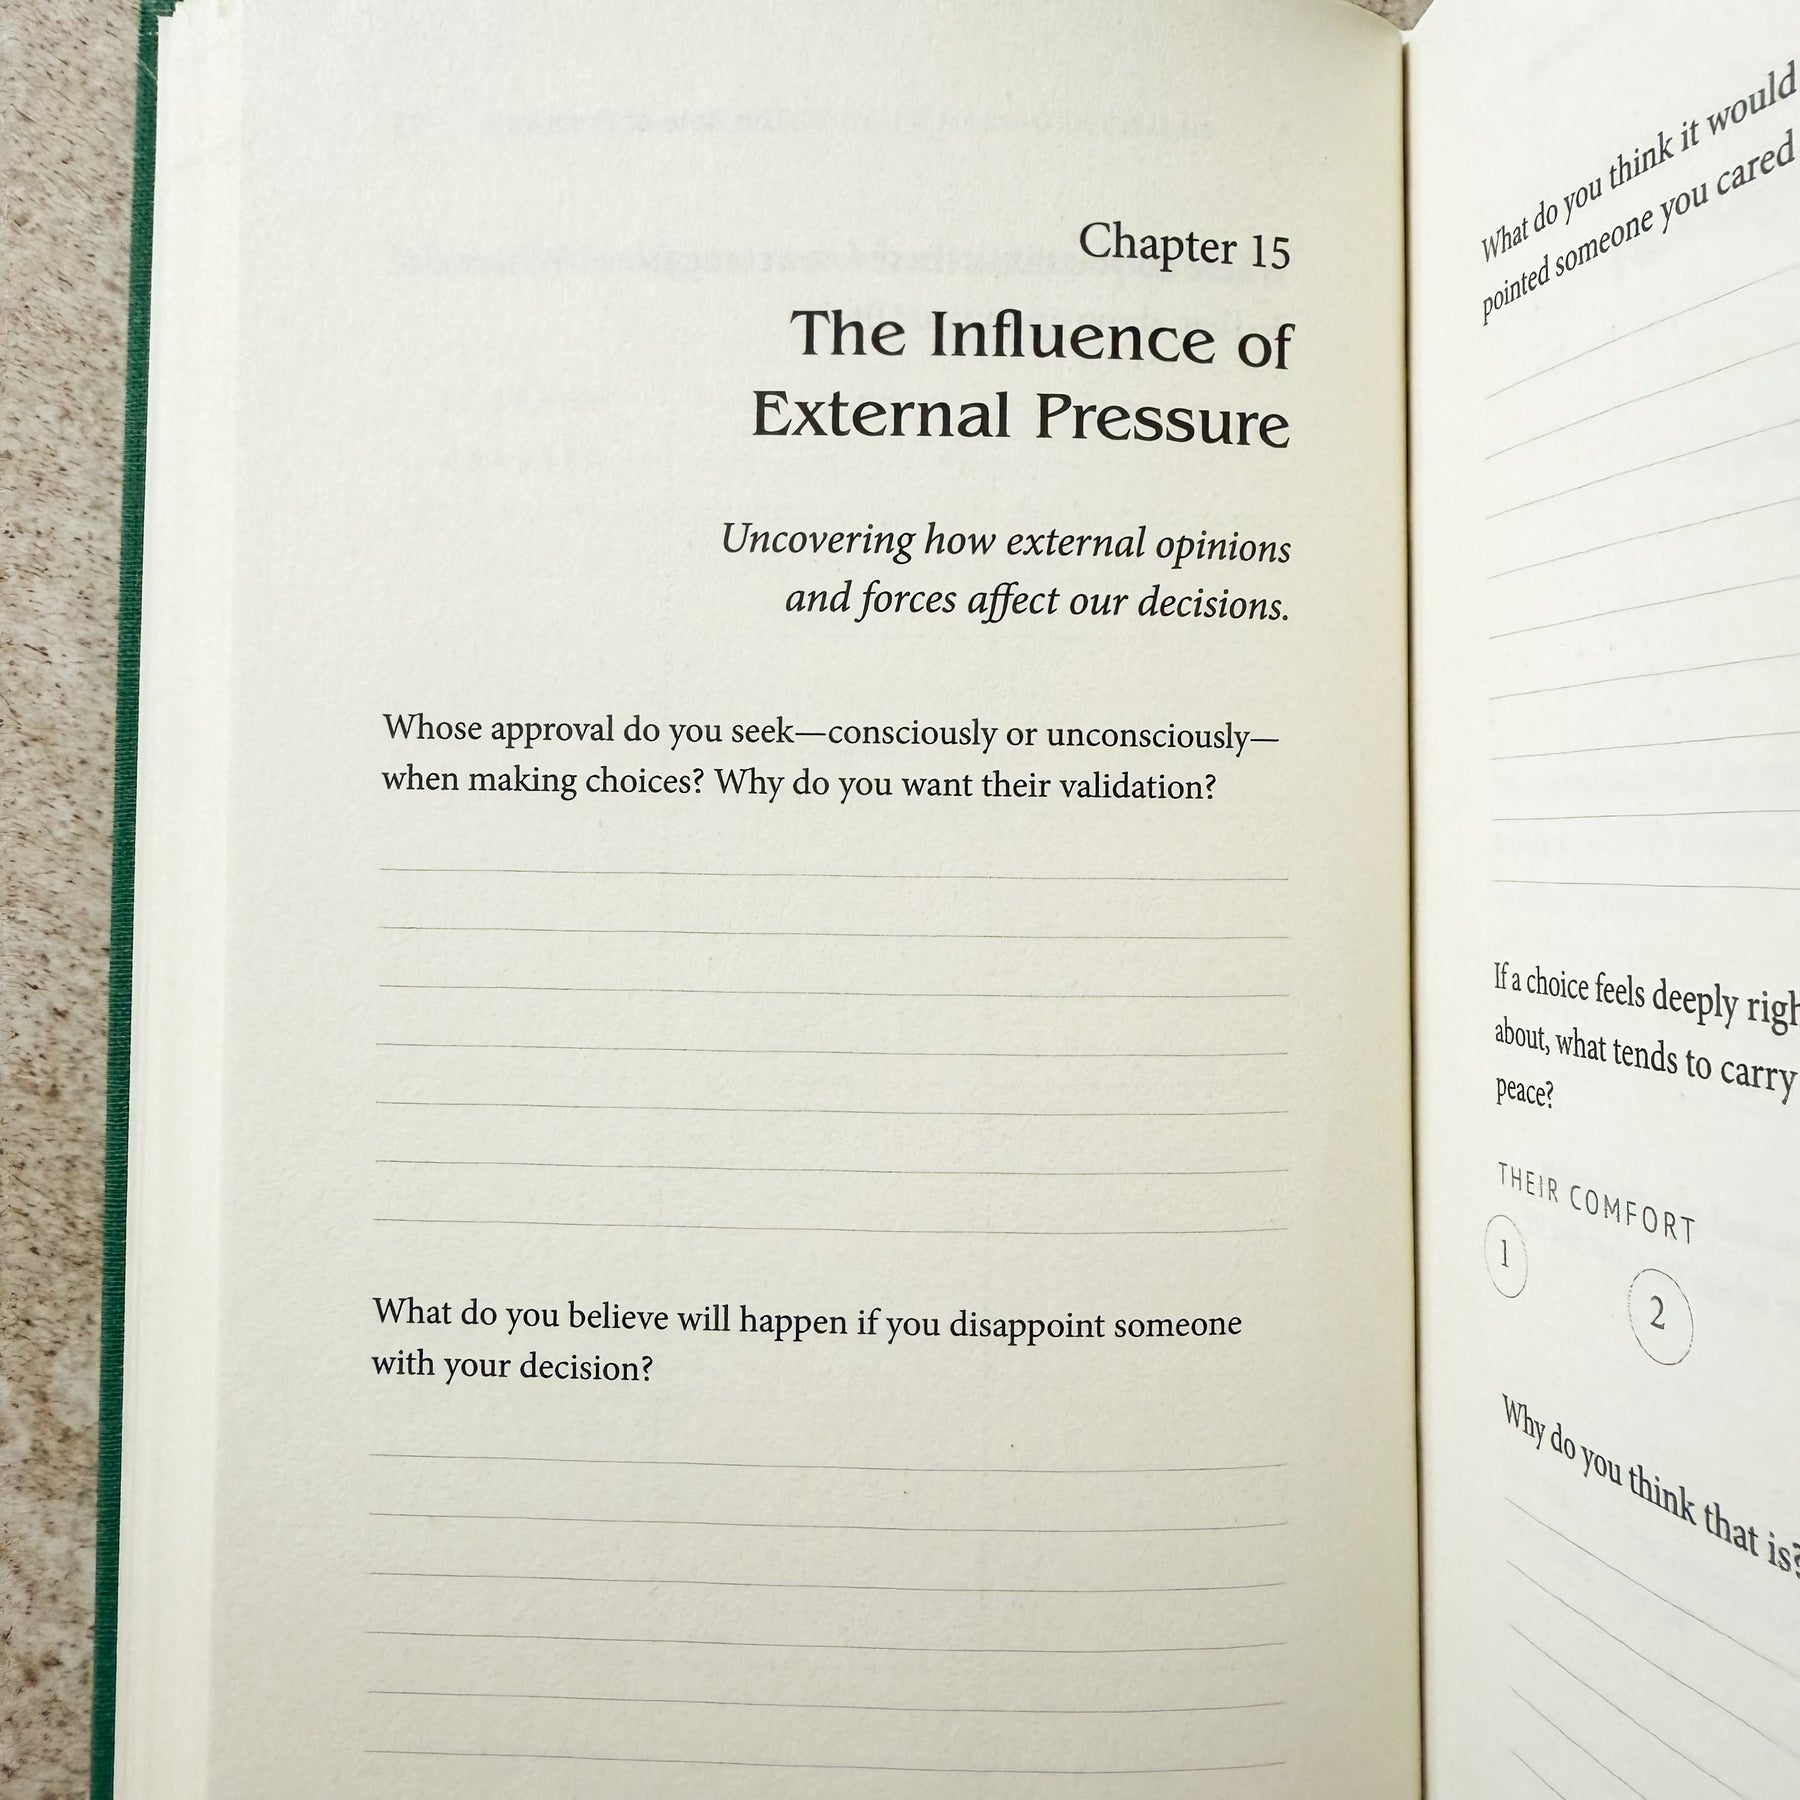 Chapter 15
The Influence of
External Pressure
Uncovering how external opinions
and forces affect our decisions.
Whose approval do you seek—consciously or unconsciously—
when making choices? Why do you want their validation?
What do you believe will happen if you disappoint someone
with your decision?
What do you think it would
pointed someone you cared
If a choice feels deeply
about, what tends to carry
peace?
THEIR COMFORT
1
2
Why do you think that is?